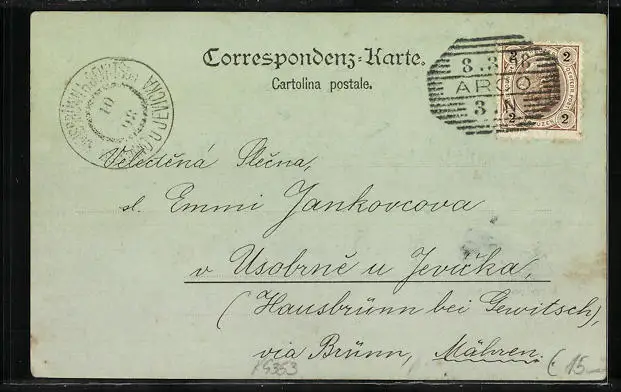 Correspondenz-Karte.
Cartolina postale.
8 3 98
ARCO
3 N
2 2
2 2
10
98
Veleděná Slečna,
sl. Emmi Jankovcova
v Usobrně u Jevíčka,
(Hausbrünn bei Gewitsch),
via Brünn, Mähren.
15.-